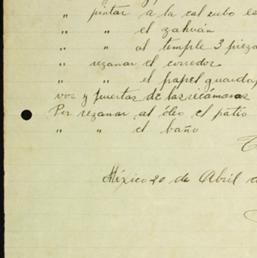 " pintar a la cal cubo es
" " el zahuán
" " al temple 3 pieza
" rezanar el corredor
" " el papel guardap
vos y puertas de las recámaras
Por rezanar al óleo el patio
" " el baño
México 20 de Abril d